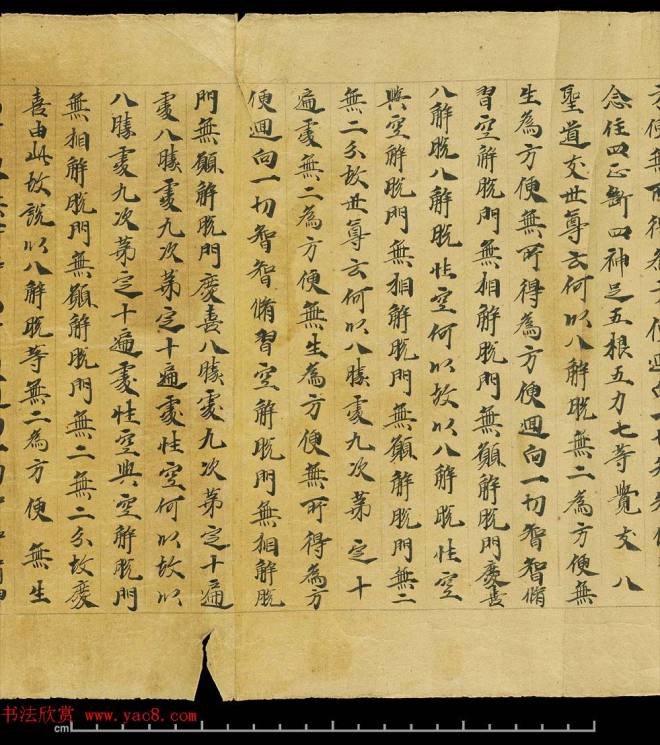 念住四正斷四神足五根五力七等覺支八
聖道支世尊云何以八解脫無二為方便無
生為方便無所得為方便迴向一切智智脩
習空解脫門無相解脫門無願解脫門慶喜
八解脫八解脫性空何以故以八解脫性空
與空解脫門無相解脫門無願解脫門無二
無二分故世尊云何以八勝處九次第定十
遍處無二為方便無生為方便無所得為方
便迴向一切智智脩習空解脫門無相解脫
門無願解脫門慶喜八勝處九次第定十遍
處八勝處九次第定十遍處性空何以故以
八勝處九次第定十遍處性空與空解脫門
無相解脫門無願解脫門無二無二分故慶
喜由此故說以八解脫等無二為方便無生
书法欣赏 www.yac8.com
cm